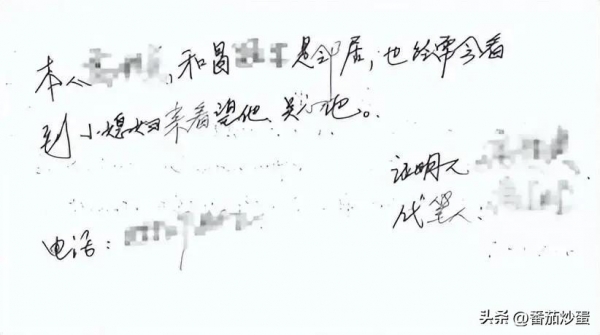 本人，和冒是邻居，也经常会看
到小媳妇来看望他、关心他。
证明人
代笔人：
电话：
头条 @番茄炒蛋